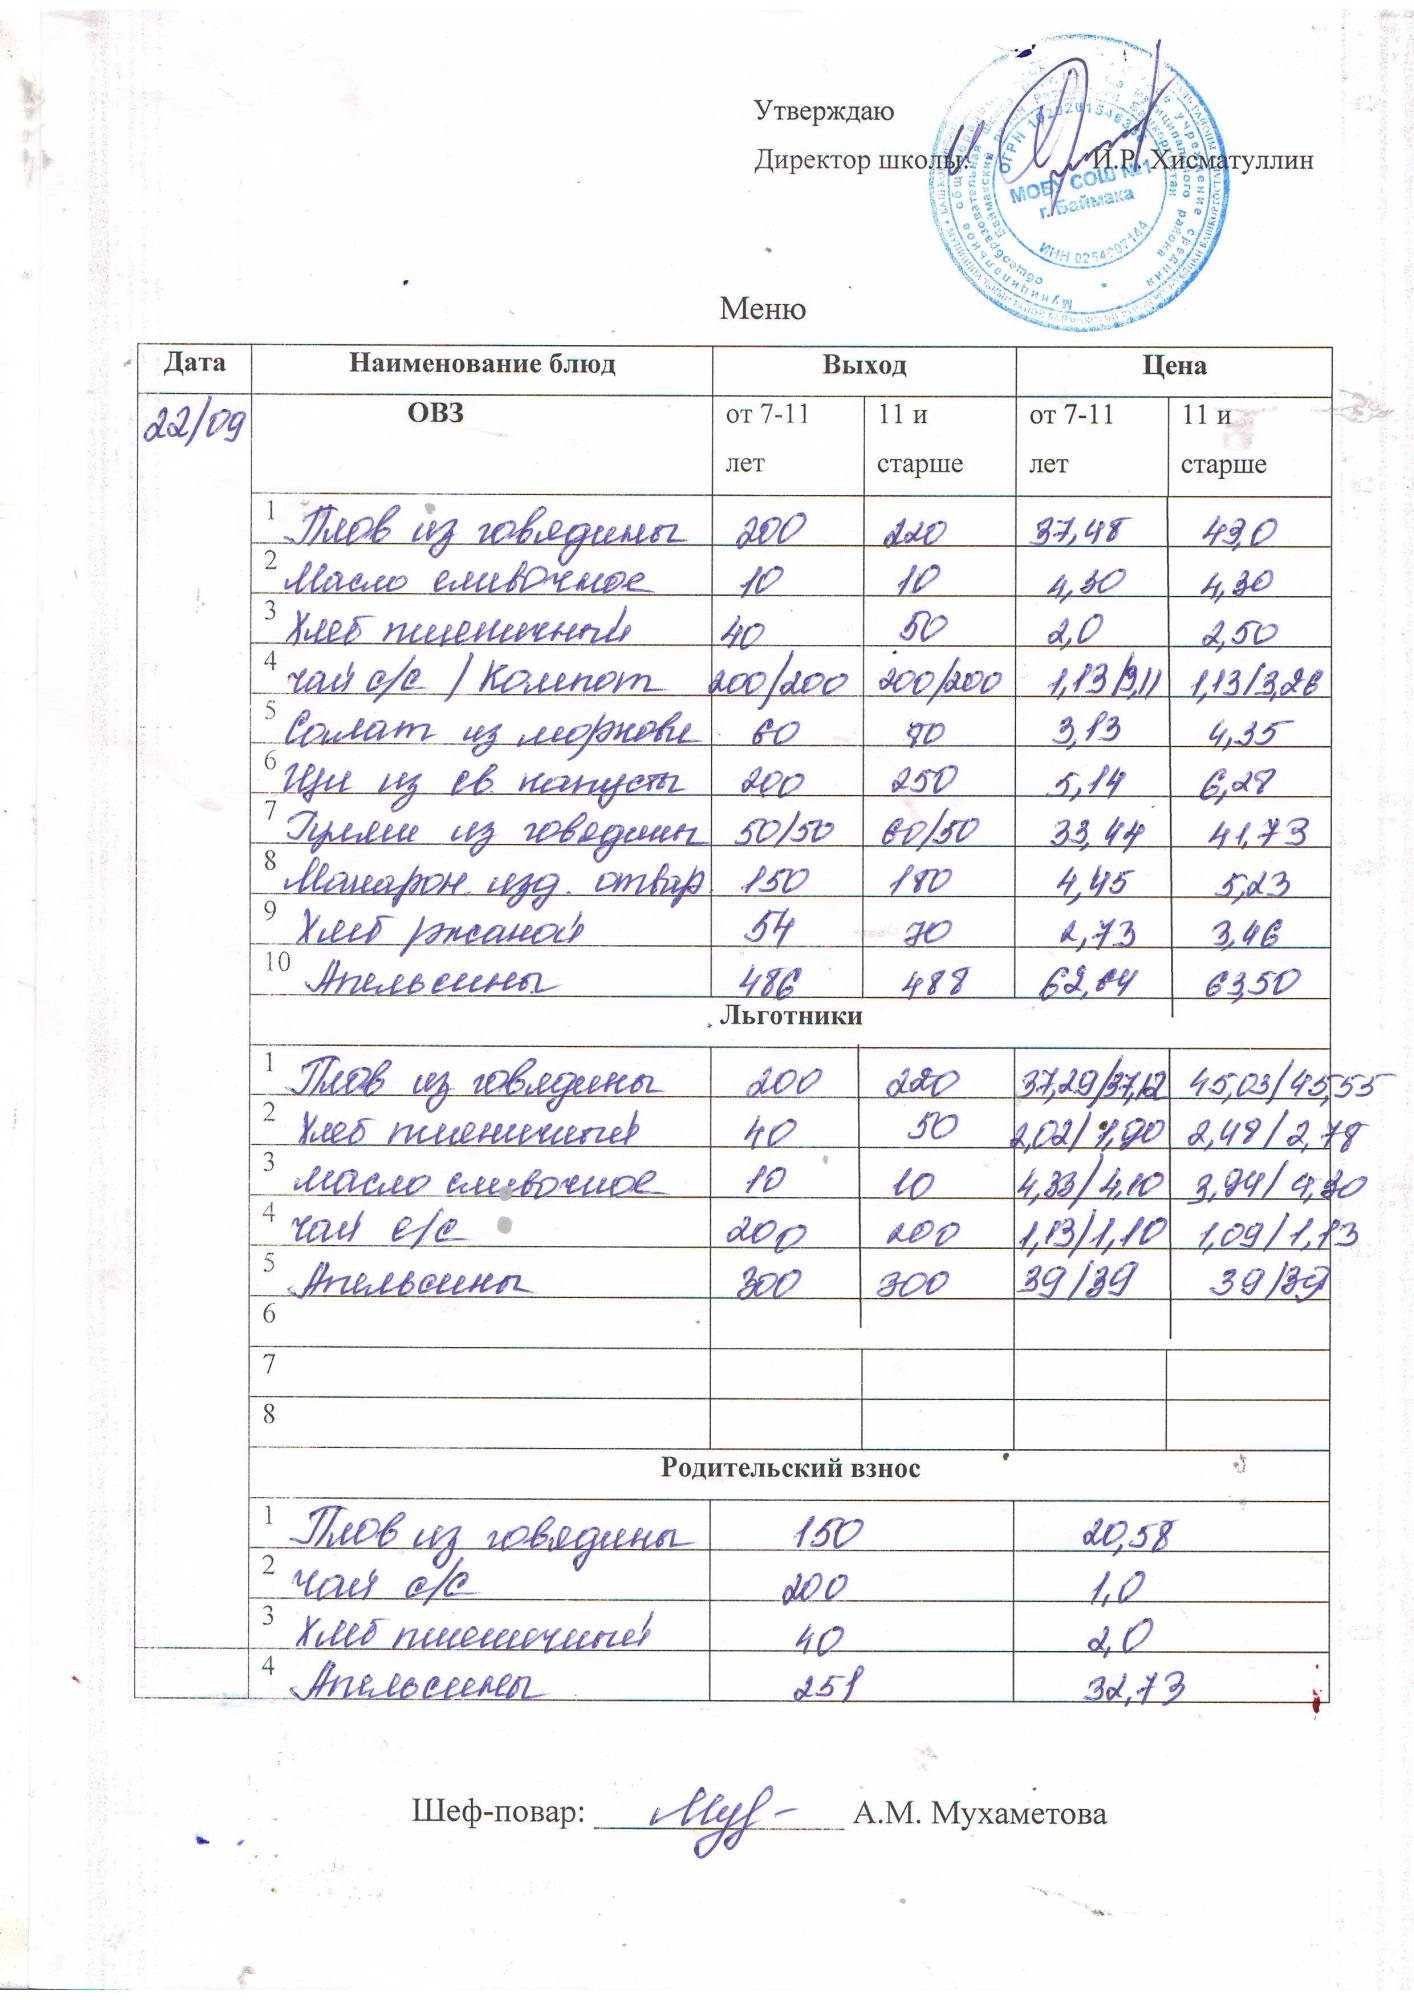 Утверждаю
Директор школы: И.Р. Хисматуллин
ОГРН
МОБУ СОШ №1
г. Баймака
ИНН 0254007144
Меню
Дата Наименование блюд Выход Цена
22/09 ОВЗ от 7-11 лет 11 и старше от 7-11 лет 11 и старше
1 Плов из говядины 200 220 37,48 43,0
2 Масло сливочное 10 10 4,30 4,30
3 Хлеб пшеничный 40 50 2,0 2,50
4 чай с/с / Компот 200/200 200/200 1,13/3,11 1,13/3,26
5 Салат из моркови 60 70 3,13 4,35
6 Щи из св. капусты 200 250 5,14 6,28
7 Гуляш из говядины 50/50 60/50 33,44 41,73
8 Макарон. изд. отвар. 150 180 4,45 5,23
9 Хлеб ржаной 54 70 2,73 3,46
10 Апельсины 486 488 62,64 63,50
Льготники
1 Плов из говядины 200 220 37,29/37,12 45,03/45,55
2 Хлеб пшеничный 40 50 2,02/1,90 2,48/2,78
3 масло сливочное 10 10 4,33/4,10 3,94/4,30
4 чай с/с 200 200 1,13/1,10 1,09/1,13
5 Апельсины 300 300 39/39 39/39
6
7
8
Родительский взнос
1 Плов из говядины 150 20,58
2 чай с/с 200 1,0
3 Хлеб пшеничный 40 2,0
4 Апельсины 251 32,73
Шеф-повар: А.М. Мухаметова